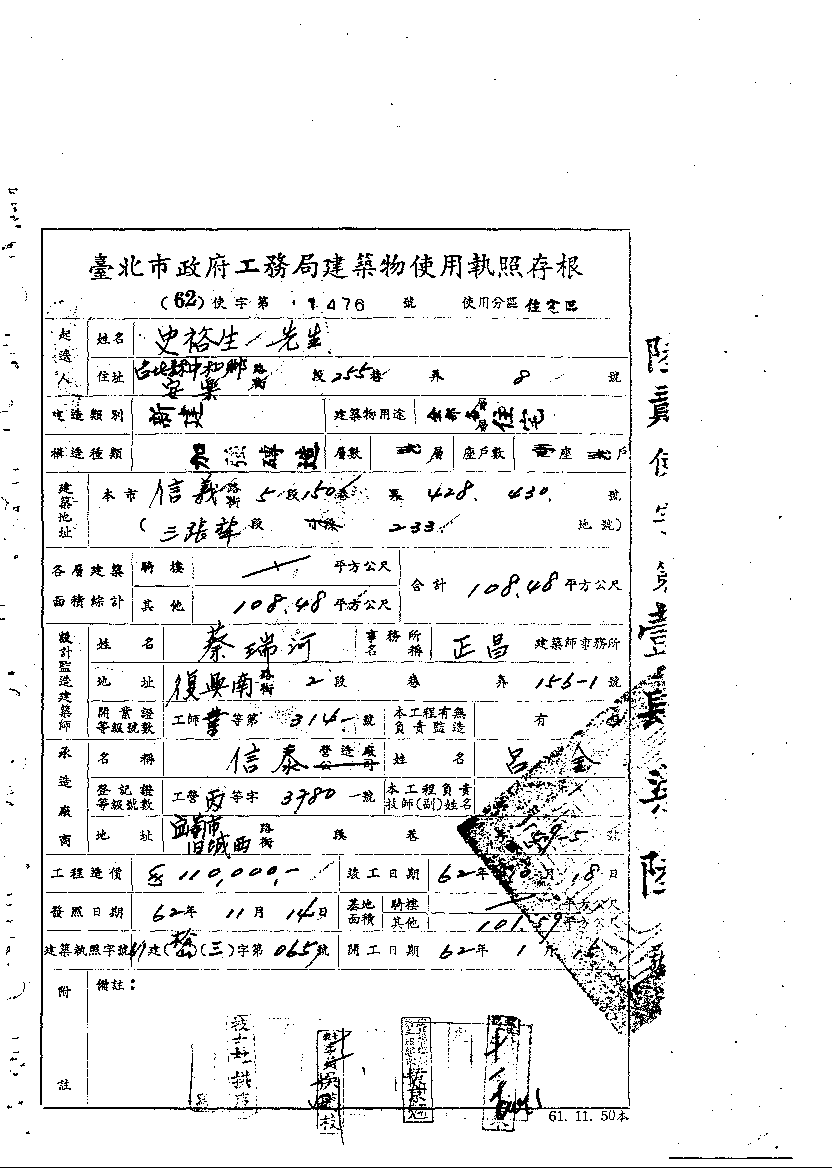 臺北市政府工務局建築物使用執照存根
(62) 使字第 1476 號 使用分區 住宅區
起造人 姓名 史裕生 先生
住址 台北縣中和鄉安樂 路街 段 255巷 弄 8 號
建造類別 新建 建築物用途 全部各層住宅
構造種類 加強磚造 層數 貳 層 座戶數 壹 座 貳 戶
建築地址 本市 信義 路街 5 段 150 巷 弄 428. 430. 號
( 三張犂 段 小段 233. 地號)
各層建築面積綜計 騎樓 平方公尺 合計 108.48 平方公尺
其他 108.48 平方公尺
設計監造建築師 姓名 蔡瑞河 事務所名稱 正昌 建築師事務所
地址 復興南 路街 2 段 巷 弄 156-1 號
開業證等級號數 工師 業 等第 314 號 本工程有無負責監造 有
承造廠商 名稱 信泰 營造廠公司 姓名 呂 金
登記證等級號數 工營 丙 等字 3780 號 本工程負責技師(副)姓名
地址 宜蘭市旧城西 路街 段 巷 59-5 號
工程造價 110,000.- 竣工日期 62 年 10 月 18 日
發照日期 62 年 11 月 14 日 基地面積 騎樓 平方公尺
其他 101.59 平方公尺
建築執照字號 61 建( )(三)字第 065 號 開工日期 62 年 1 月 15
附註 備註：
61. 11. 50本
陸 使字第壹 陸